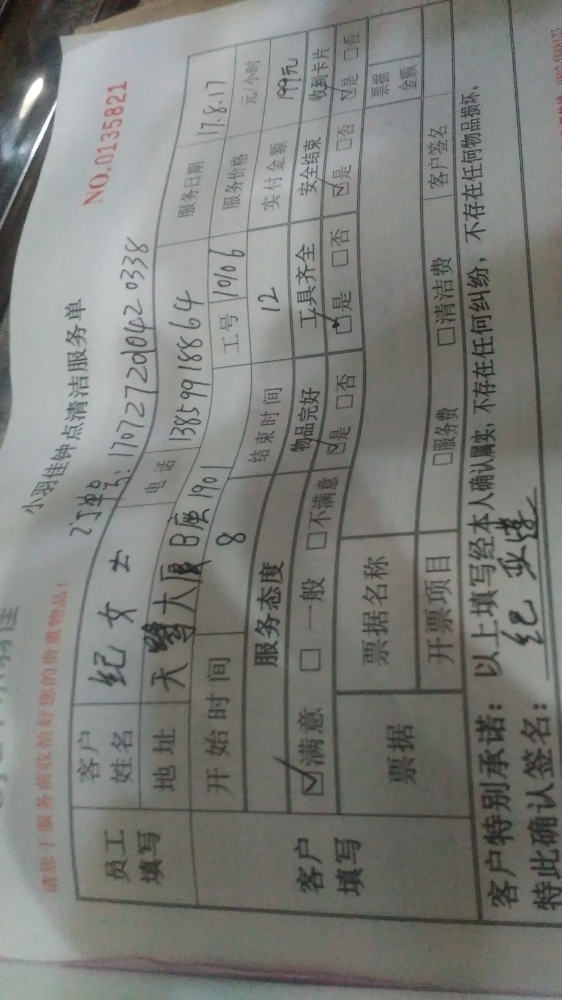 请您于服务前收拾好您的贵重物品!
小羽佳钟点清洁服务单
NO.0135821
订单号: 170727200420338
员工填写
客户姓名 纪女士 电话 13859918864 服务日期 17.8.17
地址 天鹭大厦B座1901 工号 10106 服务价格 元/小时
开始时间 8 结束时间 12 实付金额 199元
客户填写
服务态度 物品完好 工具齐全 安全结束 收到卡片
☑满意 □一般 □不满意 ☑是 □否 ☑是 □否 ☑是 □否 ☑是 □否
票据 票据名称 票据金额
开票项目 □服务费 □清洁费 客户签名
客户特别承诺: 以上填写经本人确认属实,不存在任何纠纷,不存在任何物品损坏.
特此确认签名: 纪